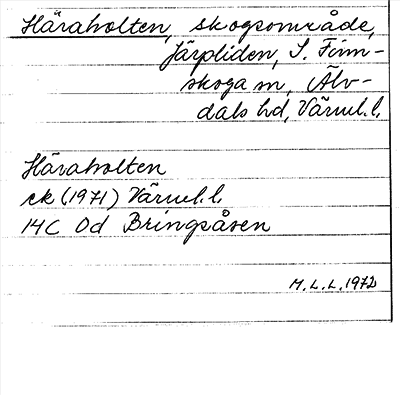 Häraholten, skogsområde,
Järpliden, S. Finn-
skoga sn, Älv-
dals hd, Värml. l.
Häraholten
ek (1971) Värml. l.
14C 0d Bringsåsen
M. L. L. 1972